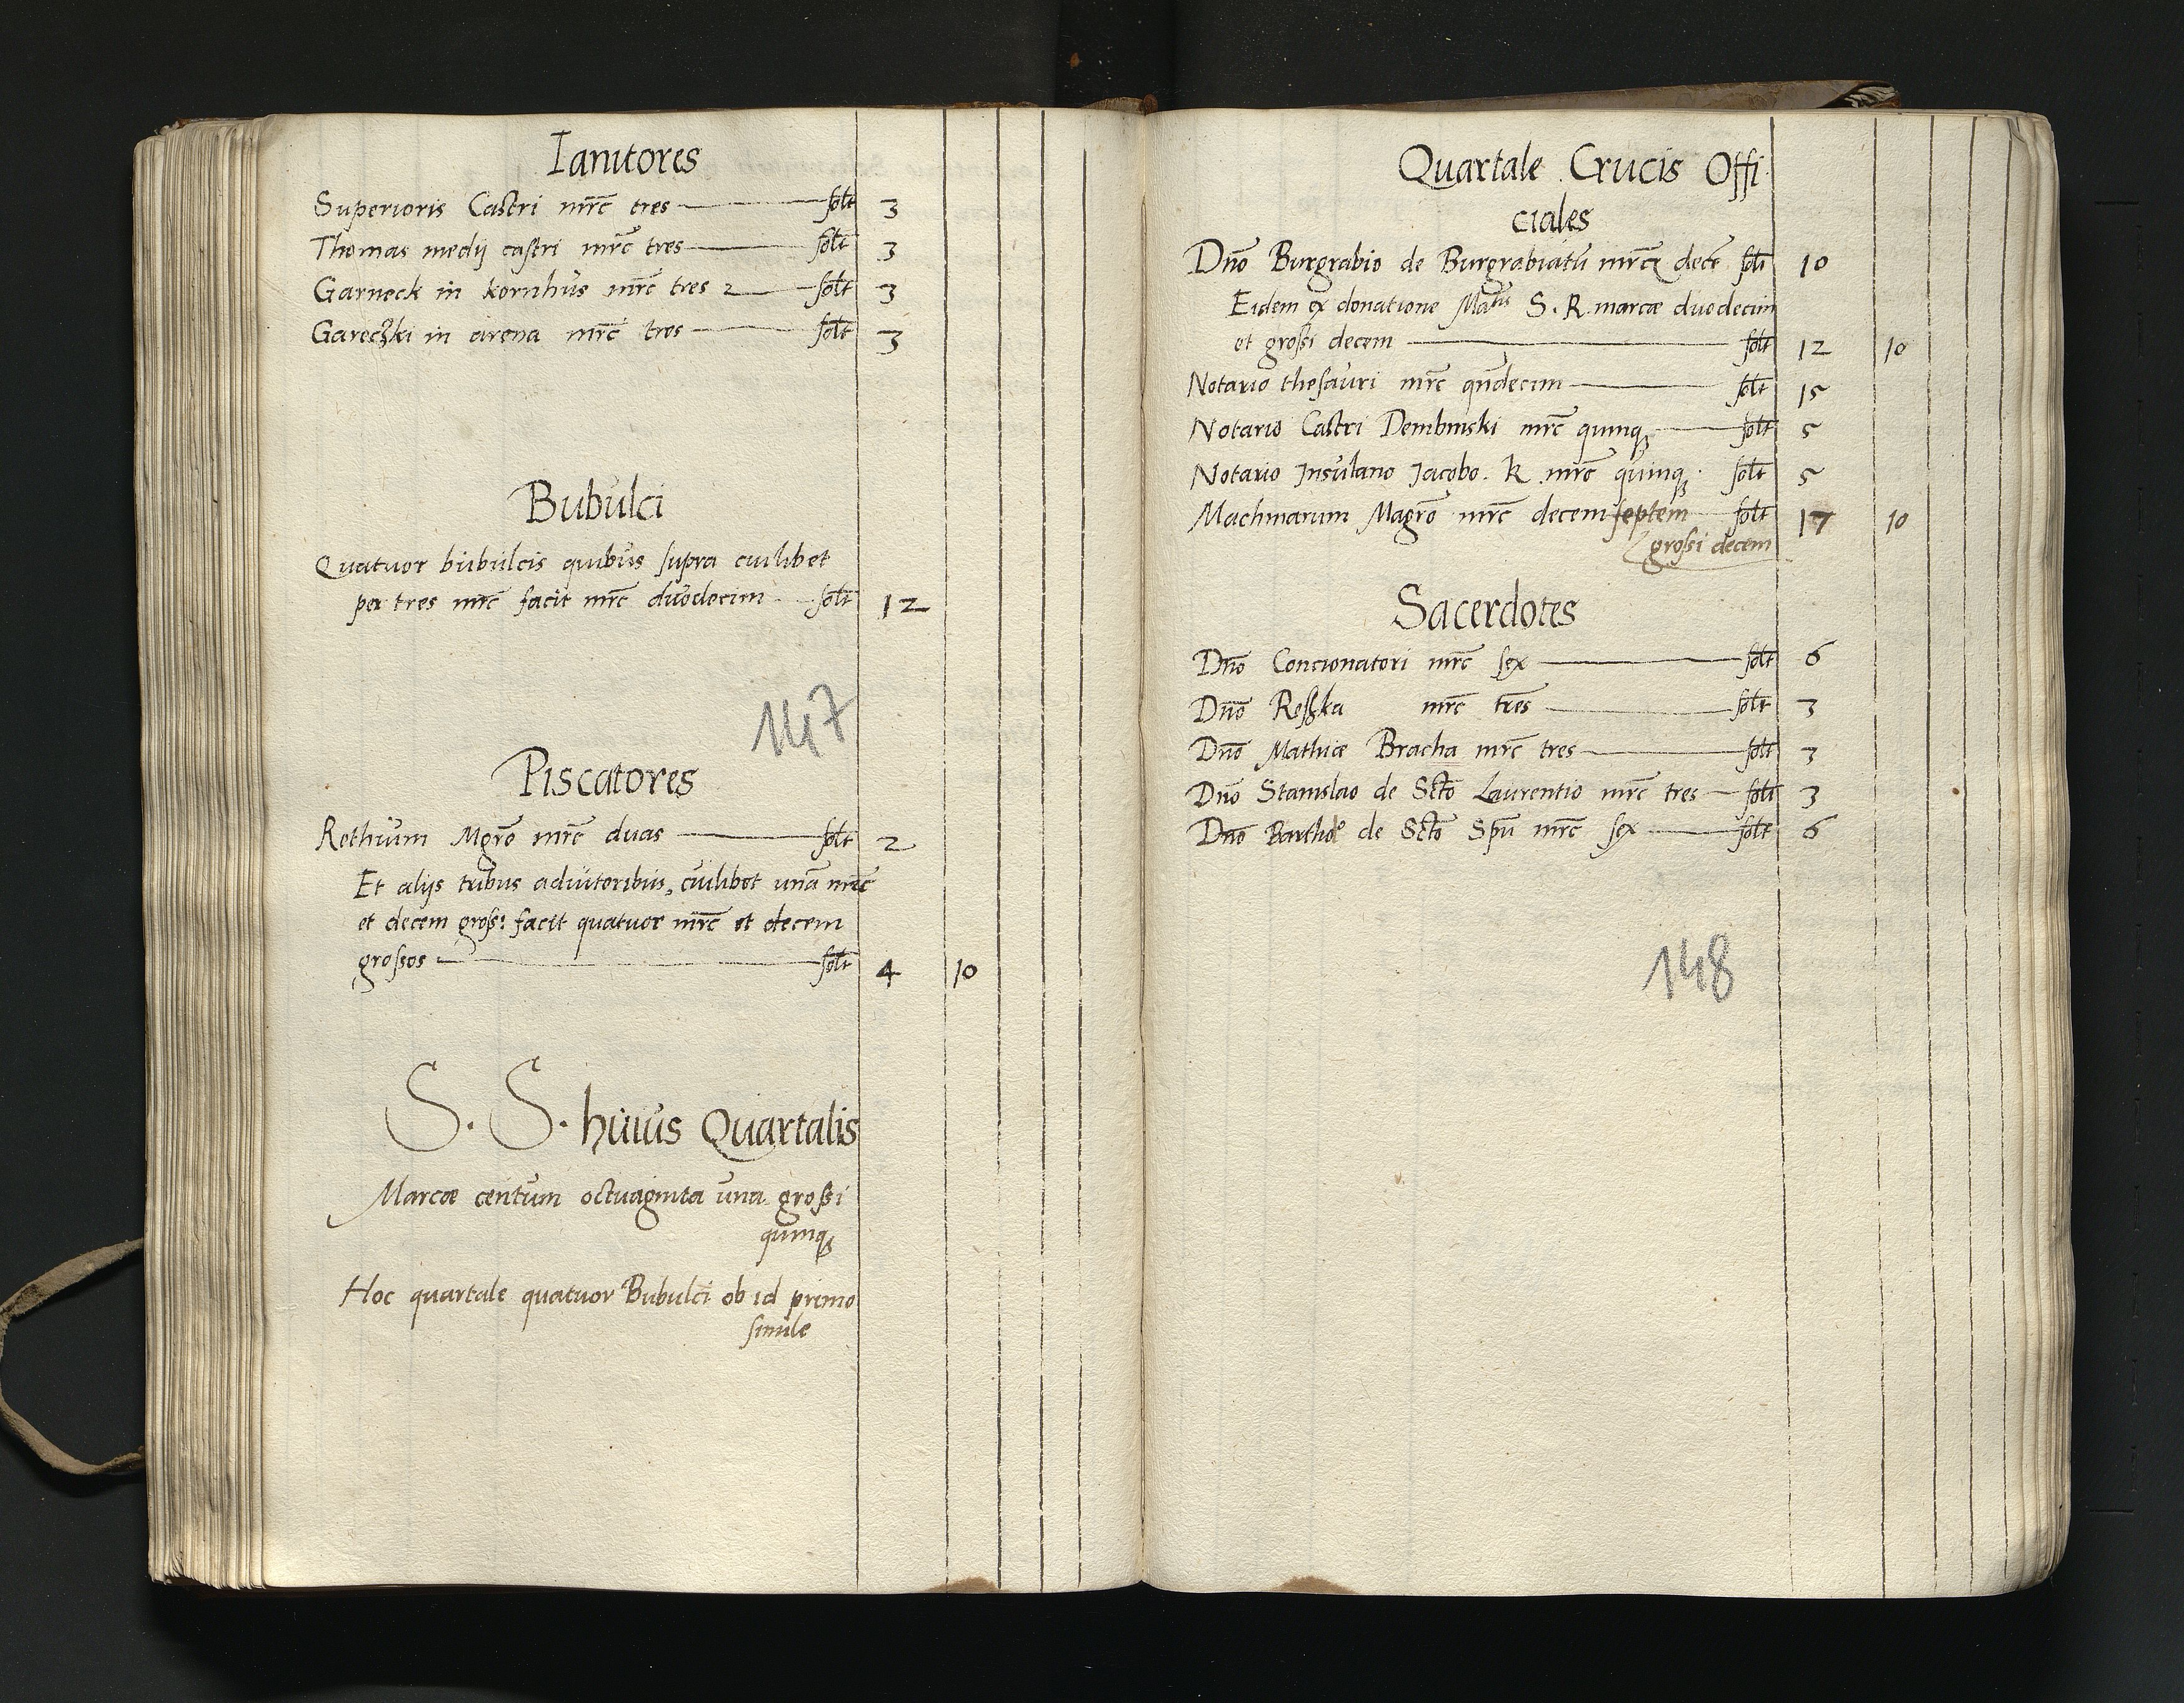 Ianitores
Superioris Castri mrc̄ tres solt 3
Thomas medij castri mrc̄ tres solt 3
Garneck in kornhus mrc̄ tres 2 solt 3
Gareczki in arena mrc̄ tres solt 3
Bubulci
Quatuor bubulcis quibus supra cuilibet
per tres mrc̄ facit mrc̄ duodecim solt 12
147
Piscatores
Rethium Mgro mrc̄ duas solt 2
Et alijs tribus adiutoribus, cuilibet unā mrc̄
et decem gross: facit quatuor mrc̄ et decem
grossos solt 4 10
S. S. huius Quartalis
Marcæ centum octuaginta una grossi
quinqꝫ
Hoc quartale quatuor Bubulci ob id primo
simile
Quartale Crucis Offi
ciales
Dno Burgrabio de Burgrabiatu mrcæ decē solt 10
Eidem ex donatione Matis S. R. marcæ duodecim
et grossi decem solt 12 10
Notario thesauri mrc̄ qndecim solt 15
Notario Castri Dembinski mrc̄ quinqꝫ solt 5
Notario Insulano Jacobo. K. mrc̄ quinqꝫ solt 5
Machinarum Magro mrc̄ decem septem solt 17 10
grossi decem
Sacerdotes
Dno Concionatori mrc̄ sex solt 6
Dno Reszka mrc̄ tres solt 3
Dno Mathiæ Bracha mrc̄ tres solt 3
Dno Stanislao de Scto Laurentio mrc̄ tres solt 3
Dno Bartholo de Scto Spu mrc̄ sex solt 6
148